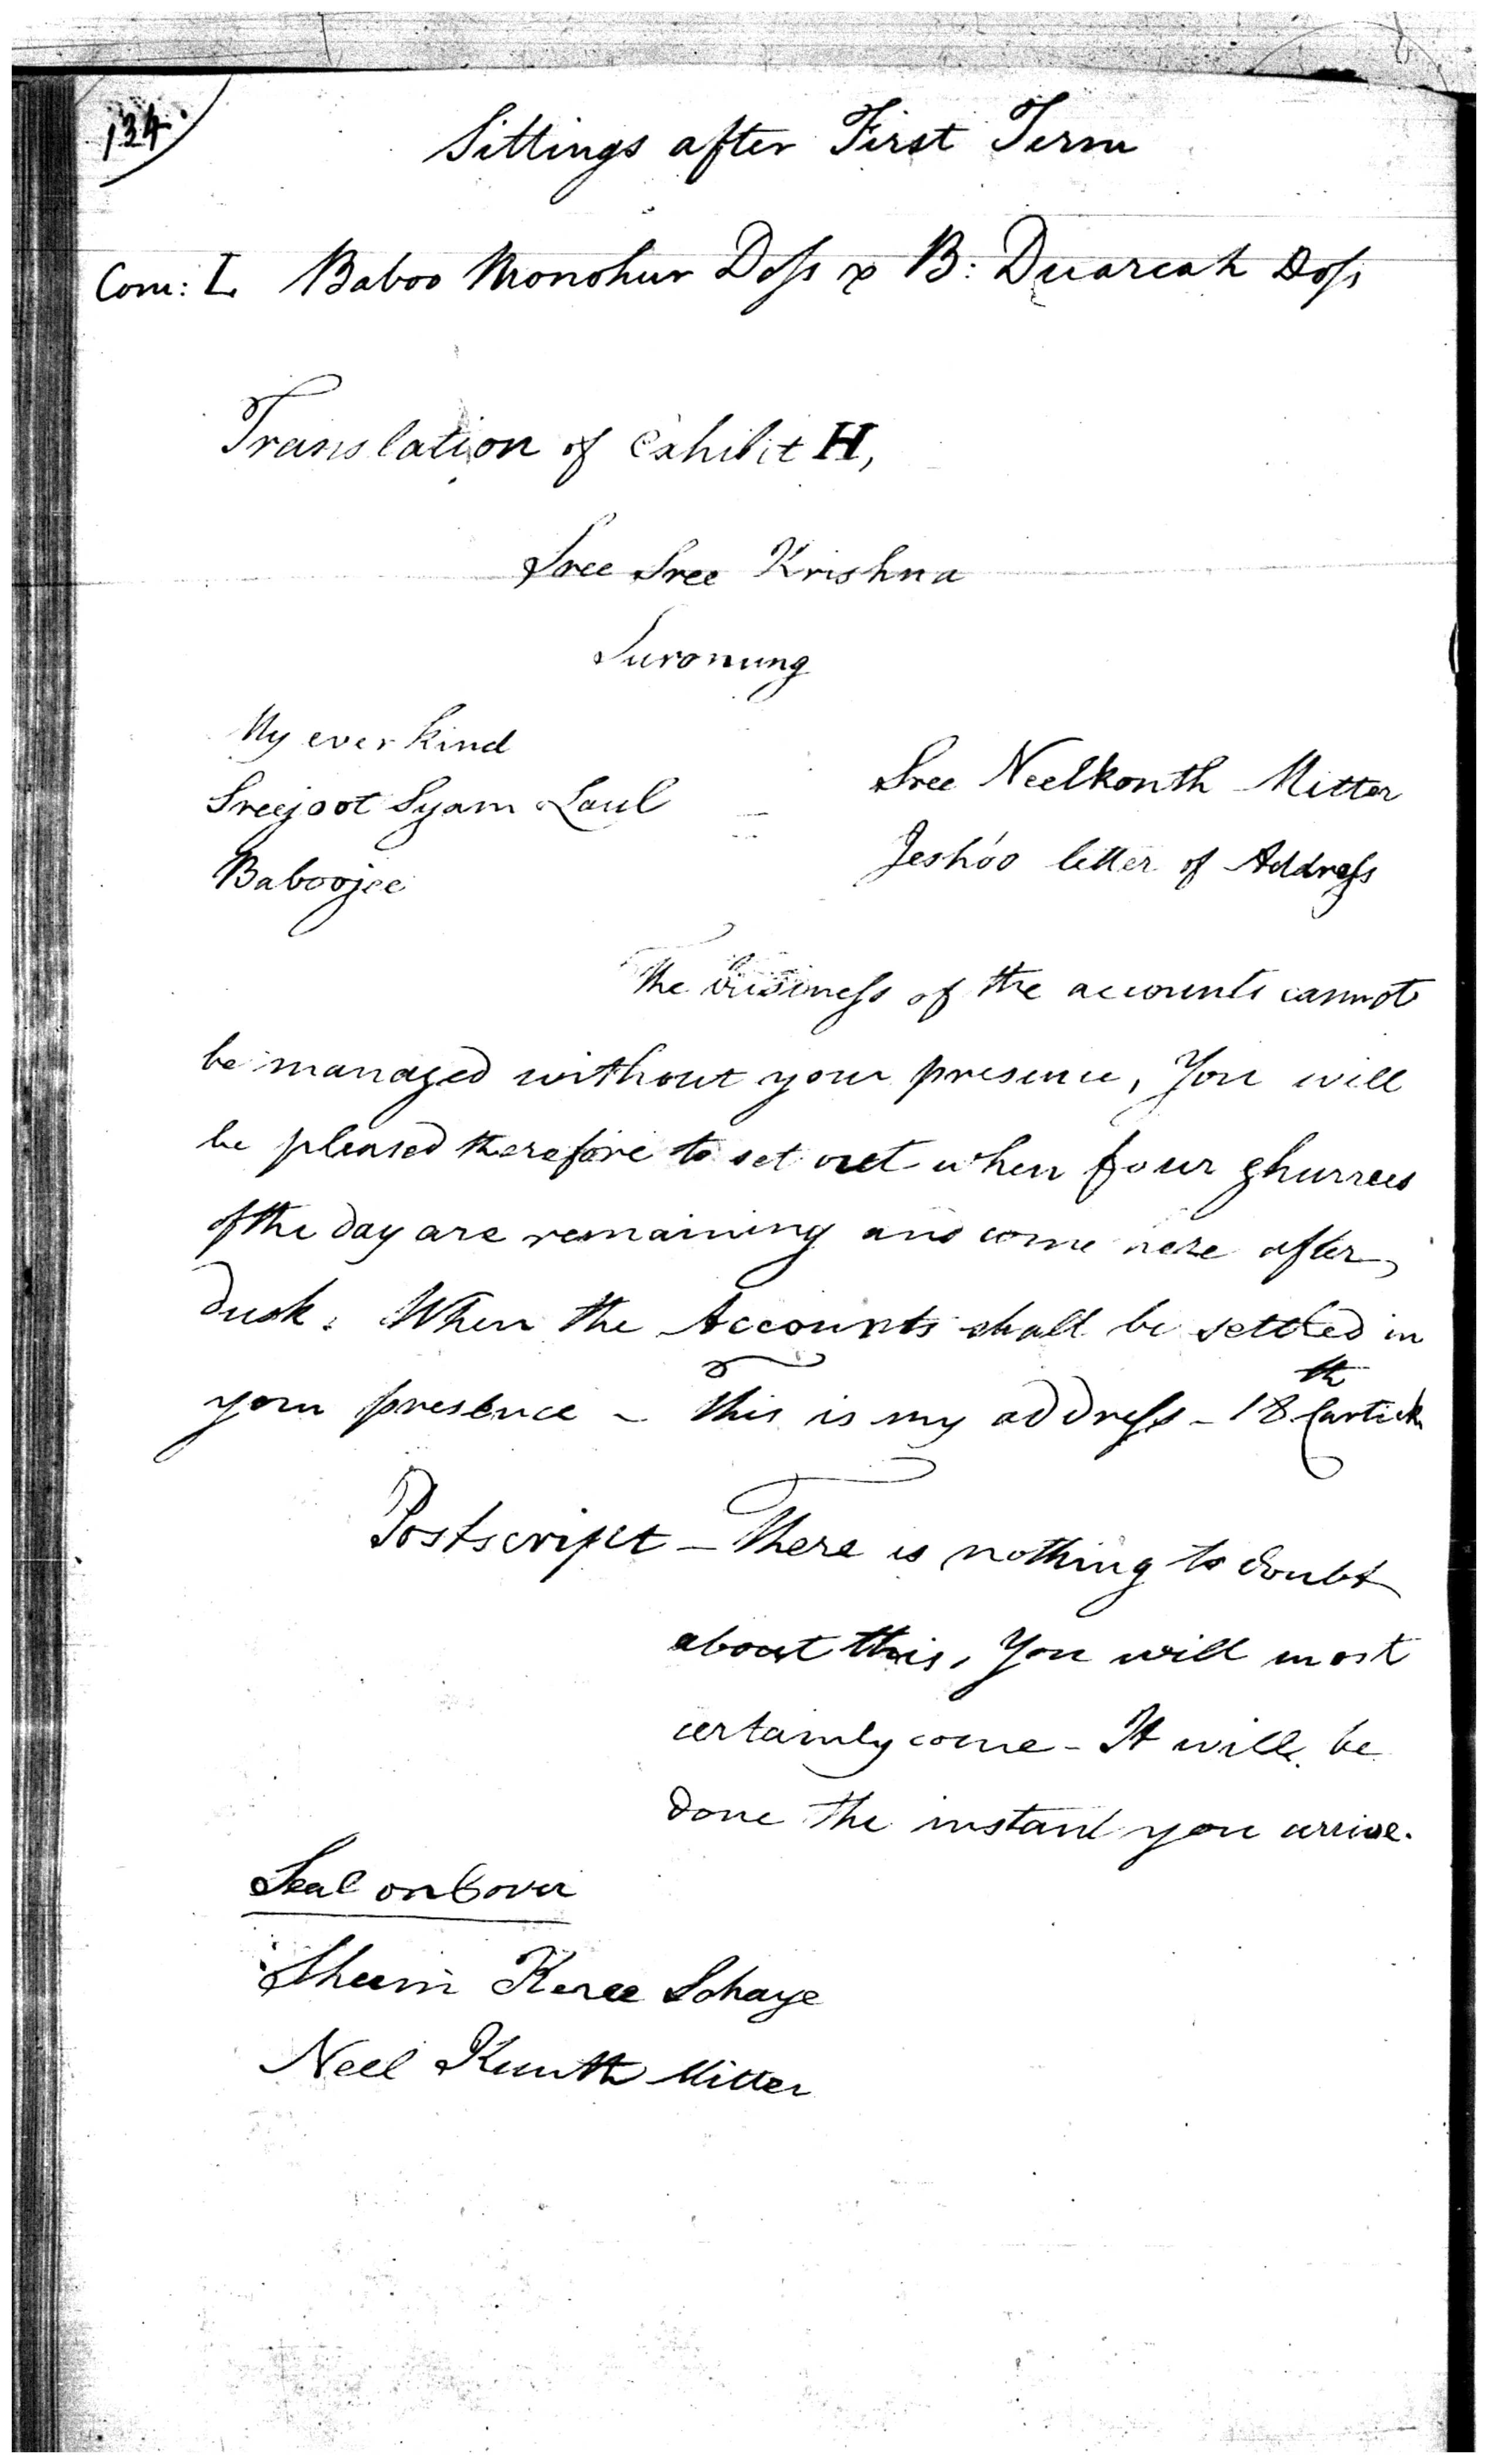 134.
Sittings after First Term
Com: L Baboo Monohur Doss v B: Duarcah Doss
Translation of Exhibit H,
Sree Sree Krishna
Suronung
My ever kind
Sreejoot Syam Laul
Baboojee
Sree Neelkonth Mitter
Jeshóo letter of Address
The business of the accounts cannot
be managed without your presence, You will
be pleased therefore to set out when four ghurrees
of the day are remaining and come here after
dusk. When the Accounts shall be settled in
your presence - This is my address - 18th Cartick
Postscript - There is nothing to doubt
about this, You will most
certainly come - It will be
done the instant you arrive.
Seal on Cover
Neel Kunth Mitter